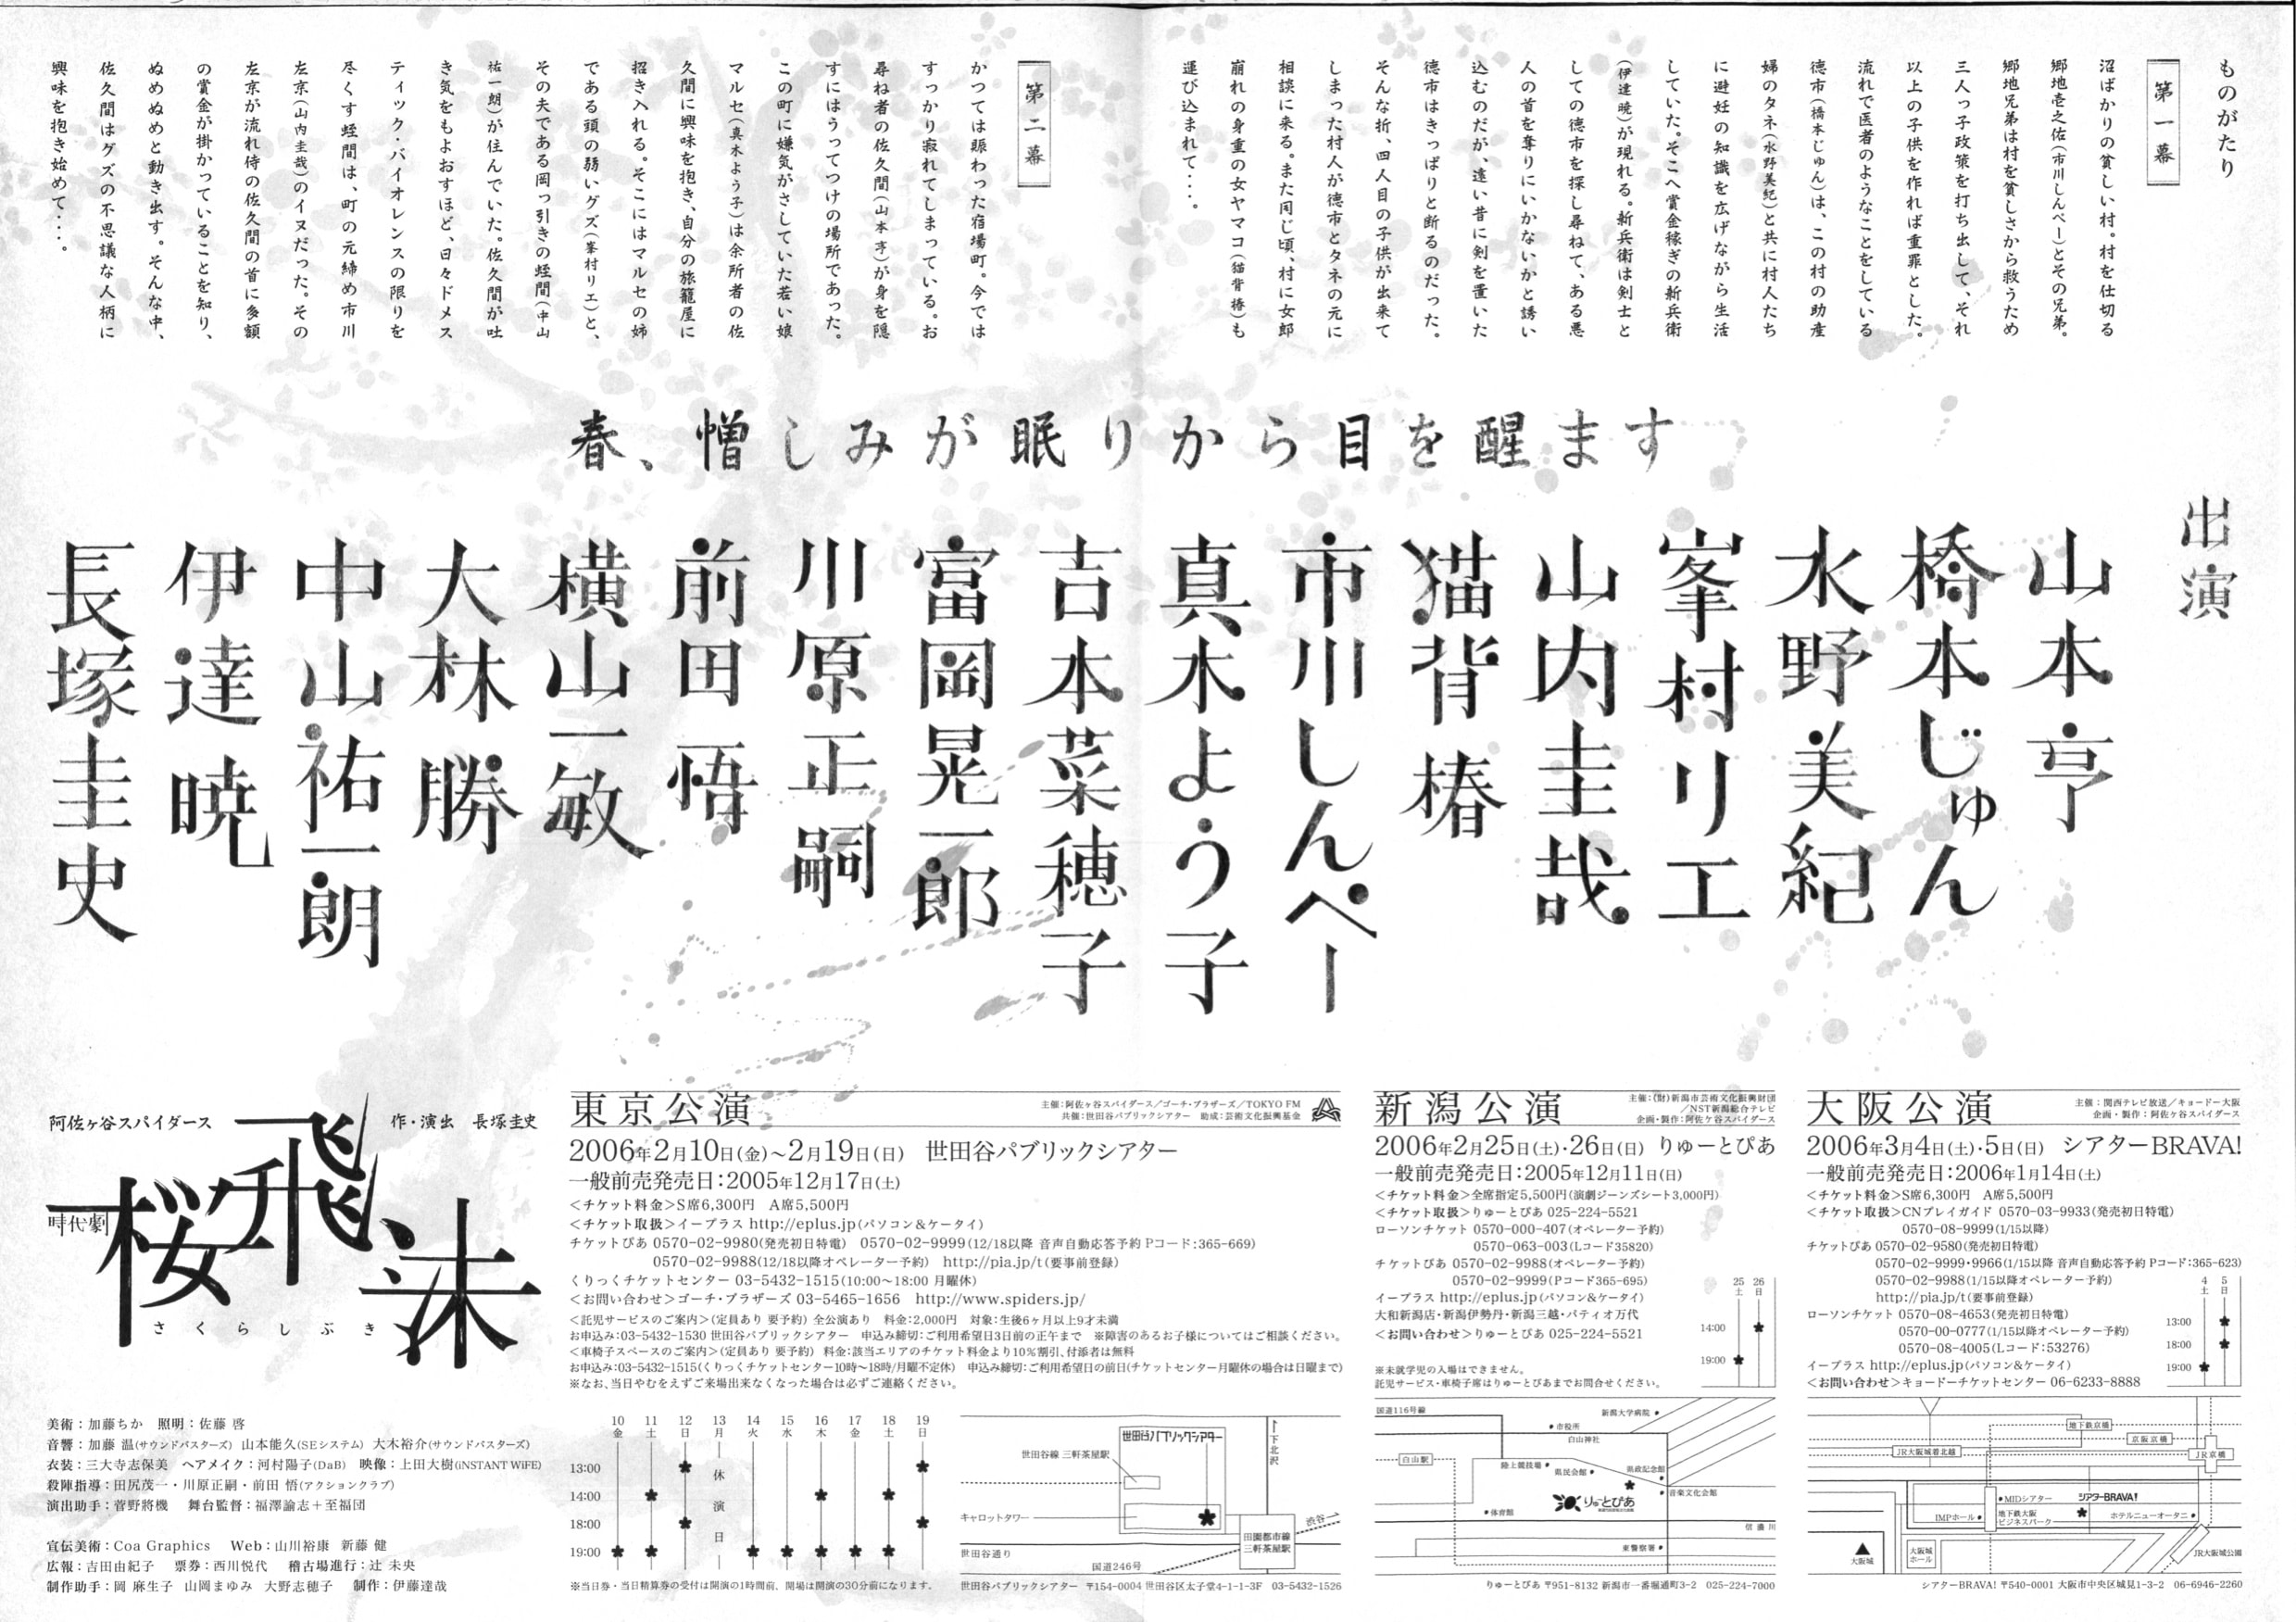 ものがたり
第一幕
沼ばかりの貧しい村。村を仕切る
郷地壱之佑(市川しんぺー)とその兄弟。
郷地兄弟は村を貧しさから救うため
三人っ子政策を打ち出して、それ
以上の子供を作れば重罪とした。
流れで医者のようなことをしている
徳市(橋本じゅん)は、この村の助産
婦のタネ(水野美紀)と共に村人たち
に避妊の知識を広げながら生活
していた。そこへ賞金稼ぎの新兵衛
(伊達暁)が現れる。新兵衛は剣士と
しての徳市を探し尋ねて、ある悪
人の首を奪りにいかないかと誘い
込むのだが、遠い昔に剣を置いた
徳市はきっぱりと断るのだった。
そんな折、四人目の子供が出来て
しまった村人が徳市とタネの元に
相談に来る。また同じ頃、村に女郎
崩れの身重の女ヤマコ(猫背椿)も
運び込まれて・・・。
第二幕
かつては賑わった宿場町。今では
すっかり寂れてしまっている。お
尋ね者の佐久間(山本亨)が身を隠
すにはうってつけの場所であった。
この町に嫌気がさしていた若い娘
マルセ(真木よう子)は余所者の佐
久間に興味を抱き、自分の旅籠屋に
招き入れる。そこにはマルセの姉
である頭の弱いグズ(峯村リエ)と、
その夫である岡っ引きの蛭間(中山
祐一朗)が住んでいた。佐久間が吐
き気をもよおすほど、日々ドメス
ティック・バイオレンスの限りを
尽くす蛭間は、町の元締め市川
左京(山内圭哉)のイヌだった。その
左京が流れ侍の佐久間の首に多額
の賞金が掛かっていることを知り、
ぬめぬめと動き出す。そんな中、
佐久間はグズの不思議な人柄に
興味を抱き始めて・・・。
春、憎しみが眠りから目を醒ます
出演
山本亨
橋本じゅん
水野美紀
峯村リエ
山内圭哉
猫背椿
市川しんぺー
真木よう子
吉本菜穂子
富岡晃一郎
川原正嗣
前田悟
横山一敏
大林勝
中山祐一朗
伊達暁
長塚圭史
阿佐ヶ谷スパイダース
作・演出 長塚圭史
時代劇
桜飛沫
さくらしぶき
美術：加藤ちか 照明：佐藤 啓
音響：加藤 温(サウンドバスターズ) 山本能久(SEシステム) 大木裕介(サウンドバスターズ)
衣装：三大寺志保美 ヘアメイク：河村陽子(DaB) 映像：上田大樹(iNSTANT WiFE)
殺陣指導：田尻茂一・川原正嗣・前田 悟(アクションクラブ)
演出助手：菅野將機 舞台監督：福澤諭志＋至福団
宣伝美術：Coa Graphics Web：山川裕康 新藤 健
広報：吉田由紀子 票券：西川悦代 稽古場進行：辻 未央
制作助手：岡 麻生子 山岡まゆみ 大野志穂子 制作：伊藤達哉
東京公演
主催：阿佐ヶ谷スパイダース／ゴーチ・ブラザーズ／TOKYO FM
共催：世田谷パブリックシアター 助成：芸術文化振興基金
2006年2月10日(金)～2月19日(日) 世田谷パブリックシアター
一般前売発売日：2005年12月17日(土)
＜チケット料金＞S席6,300円 A席5,500円
＜チケット取扱＞イープラス http://eplus.jp(パソコン&ケータイ)
チケットぴあ 0570-02-9980(発売初日特電) 0570-02-9999(12/18以降 音声自動応答予約 Pコード：365-669)
0570-02-9988(12/18以降オペレーター予約) http://pia.jp/t(要事前登録)
くりっくチケットセンター 03-5432-1515(10:00～18:00 月曜休)
＜お問い合わせ＞ゴーチ・ブラザーズ 03-5465-1656 http://www.spiders.jp/
＜託児サービスのご案内＞(定員あり 要予約) 全公演あり 料金：2,000円 対象：生後6ヶ月以上9才未満
お申込み：03-5432-1530 世田谷パブリックシアター 申込み締切：ご利用希望日3日前の正午まで ※障害のあるお子様についてはご相談ください。
＜車椅子スペースのご案内＞(定員あり 要予約) 料金：該当エリアのチケット料金より10％割引、付添者は無料
お申込み：03-5432-1515(くりっくチケットセンター10時～18時/月曜不定休) 申込み締切：ご利用希望日の前日(チケットセンター月曜休の場合は日曜まで)
※なお、当日やむをえずご来場出来なくなった場合は必ずご連絡ください。
10 11 12 13 14 15 16 17 18 19
金 土 日 月 火 水 木 金 土 日
13:00
14:00
18:00
19:00
休演日
※当日券・当日精算券の受付は開演の1時間前、開場は開演の30分前になります。
世田谷パブリックシアター
世田谷線 三軒茶屋駅
キャロットタワー
世田谷通り
国道246号
田園都市線
三軒茶屋駅
下北沢
渋谷
世田谷パブリックシアター 〒154-0004 世田谷区太子堂4-1-1-3F 03-5432-1526
新潟公演
主催：(財)新潟市芸術文化振興財団
／NST新潟総合テレビ
企画・製作：阿佐ケ谷スパイダース
2006年2月25日(土)・26日(日) りゅーとぴあ
一般前売発売日：2005年12月11日(日)
＜チケット料金＞全席指定5,500円(演劇ジーンズシート3,000円)
＜チケット取扱＞りゅーとぴあ 025-224-5521
ローソンチケット 0570-000-407(オペレーター予約)
0570-063-003(Lコード35820)
チケットぴあ 0570-02-9988(オペレーター予約)
0570-02-9999(Pコード365-695)
イープラス http://eplus.jp(パソコン&ケータイ)
大和新潟店・新潟伊勢丹・新潟三越・パティオ万代
＜お問い合わせ＞りゅーとぴあ 025-224-5521
※未就学児の入場はできません。
託児サービス・車椅子席はりゅーとぴあまでお問合せください。
25 26
土 日
14:00
19:00
国道116号線
市役所
新潟大学病院
白山神社
白山駅
陸上競技場
県民会館
県政記念館
音楽文化会館
りゅーとぴあ
体育館
信濃川
東警察署
りゅーとぴあ 〒951-8132 新潟市一番堀通町3-2 025-224-7000
大阪公演
主催：関西テレビ放送／キョードー大阪
企画・製作：阿佐ケ谷スパイダース
2006年3月4日(土)・5日(日) シアターBRAVA!
一般前売発売日：2006年1月14日(土)
＜チケット料金＞S席6,300円 A席5,500円
＜チケット取扱＞CNプレイガイド 0570-03-9933(発売初日特電)
0570-08-9999(1/15以降)
チケットぴあ 0570-02-9580(発売初日特電)
0570-02-9999・9966(1/15以降 音声自動応答予約 Pコード：365-623)
0570-02-9988(1/15以降オペレーター予約)
http://pia.jp/t(要事前登録)
ローソンチケット 0570-08-4653(発売初日特電)
0570-00-0777(1/15以降オペレーター予約)
0570-08-4005(Lコード：53276)
イープラス http://eplus.jp(パソコン&ケータイ)
＜お問い合わせ＞キョードーチケットセンター 06-6233-8888
4 5
土 日
13:00
18:00
19:00
地下鉄京橋
京阪京橋
JR大阪城着北越
JR京橋
MIDシアター
シアターBRAVA!
IMPホール
地下鉄大阪
ビジネスパーク
ホテルニューオータニ
大阪城
大阪城
ホール
JR大阪城公園
シアターBRAVA! 〒540-0001 大阪市中央区城見1-3-2 06-6946-2260